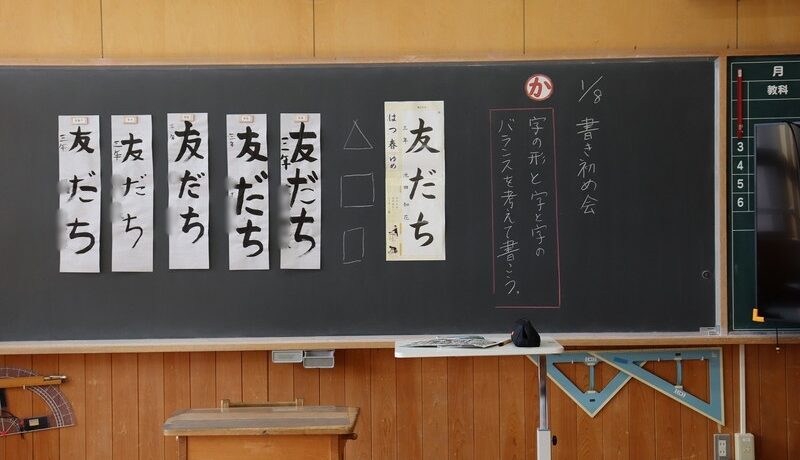 1/8 書き初め会
か
字の形と字と字の
バランスを考えて書こう。
友だち
三年
はつ春
友だち
三年
友だち
三年
友だち
三年
友だち
三年
友だち
三年
月
教科
3
4
5
6